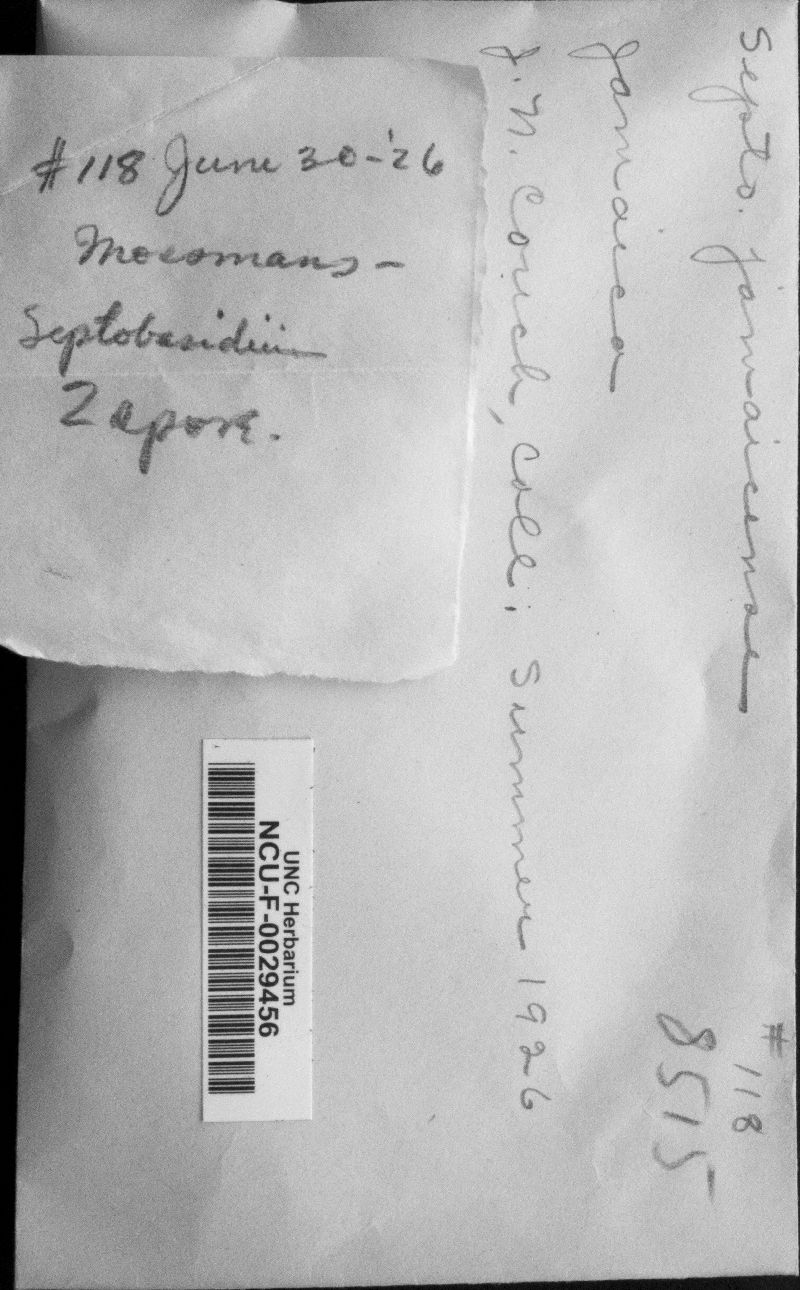 #118 June 30-'26
Moesmans -
Septobasidium
Zapore.
Septo. jamaicense
Jamaica
J. N. Couch, Coll. Summer 1926
# 118
8515
UNC Herbarium
NCU-F-0029456